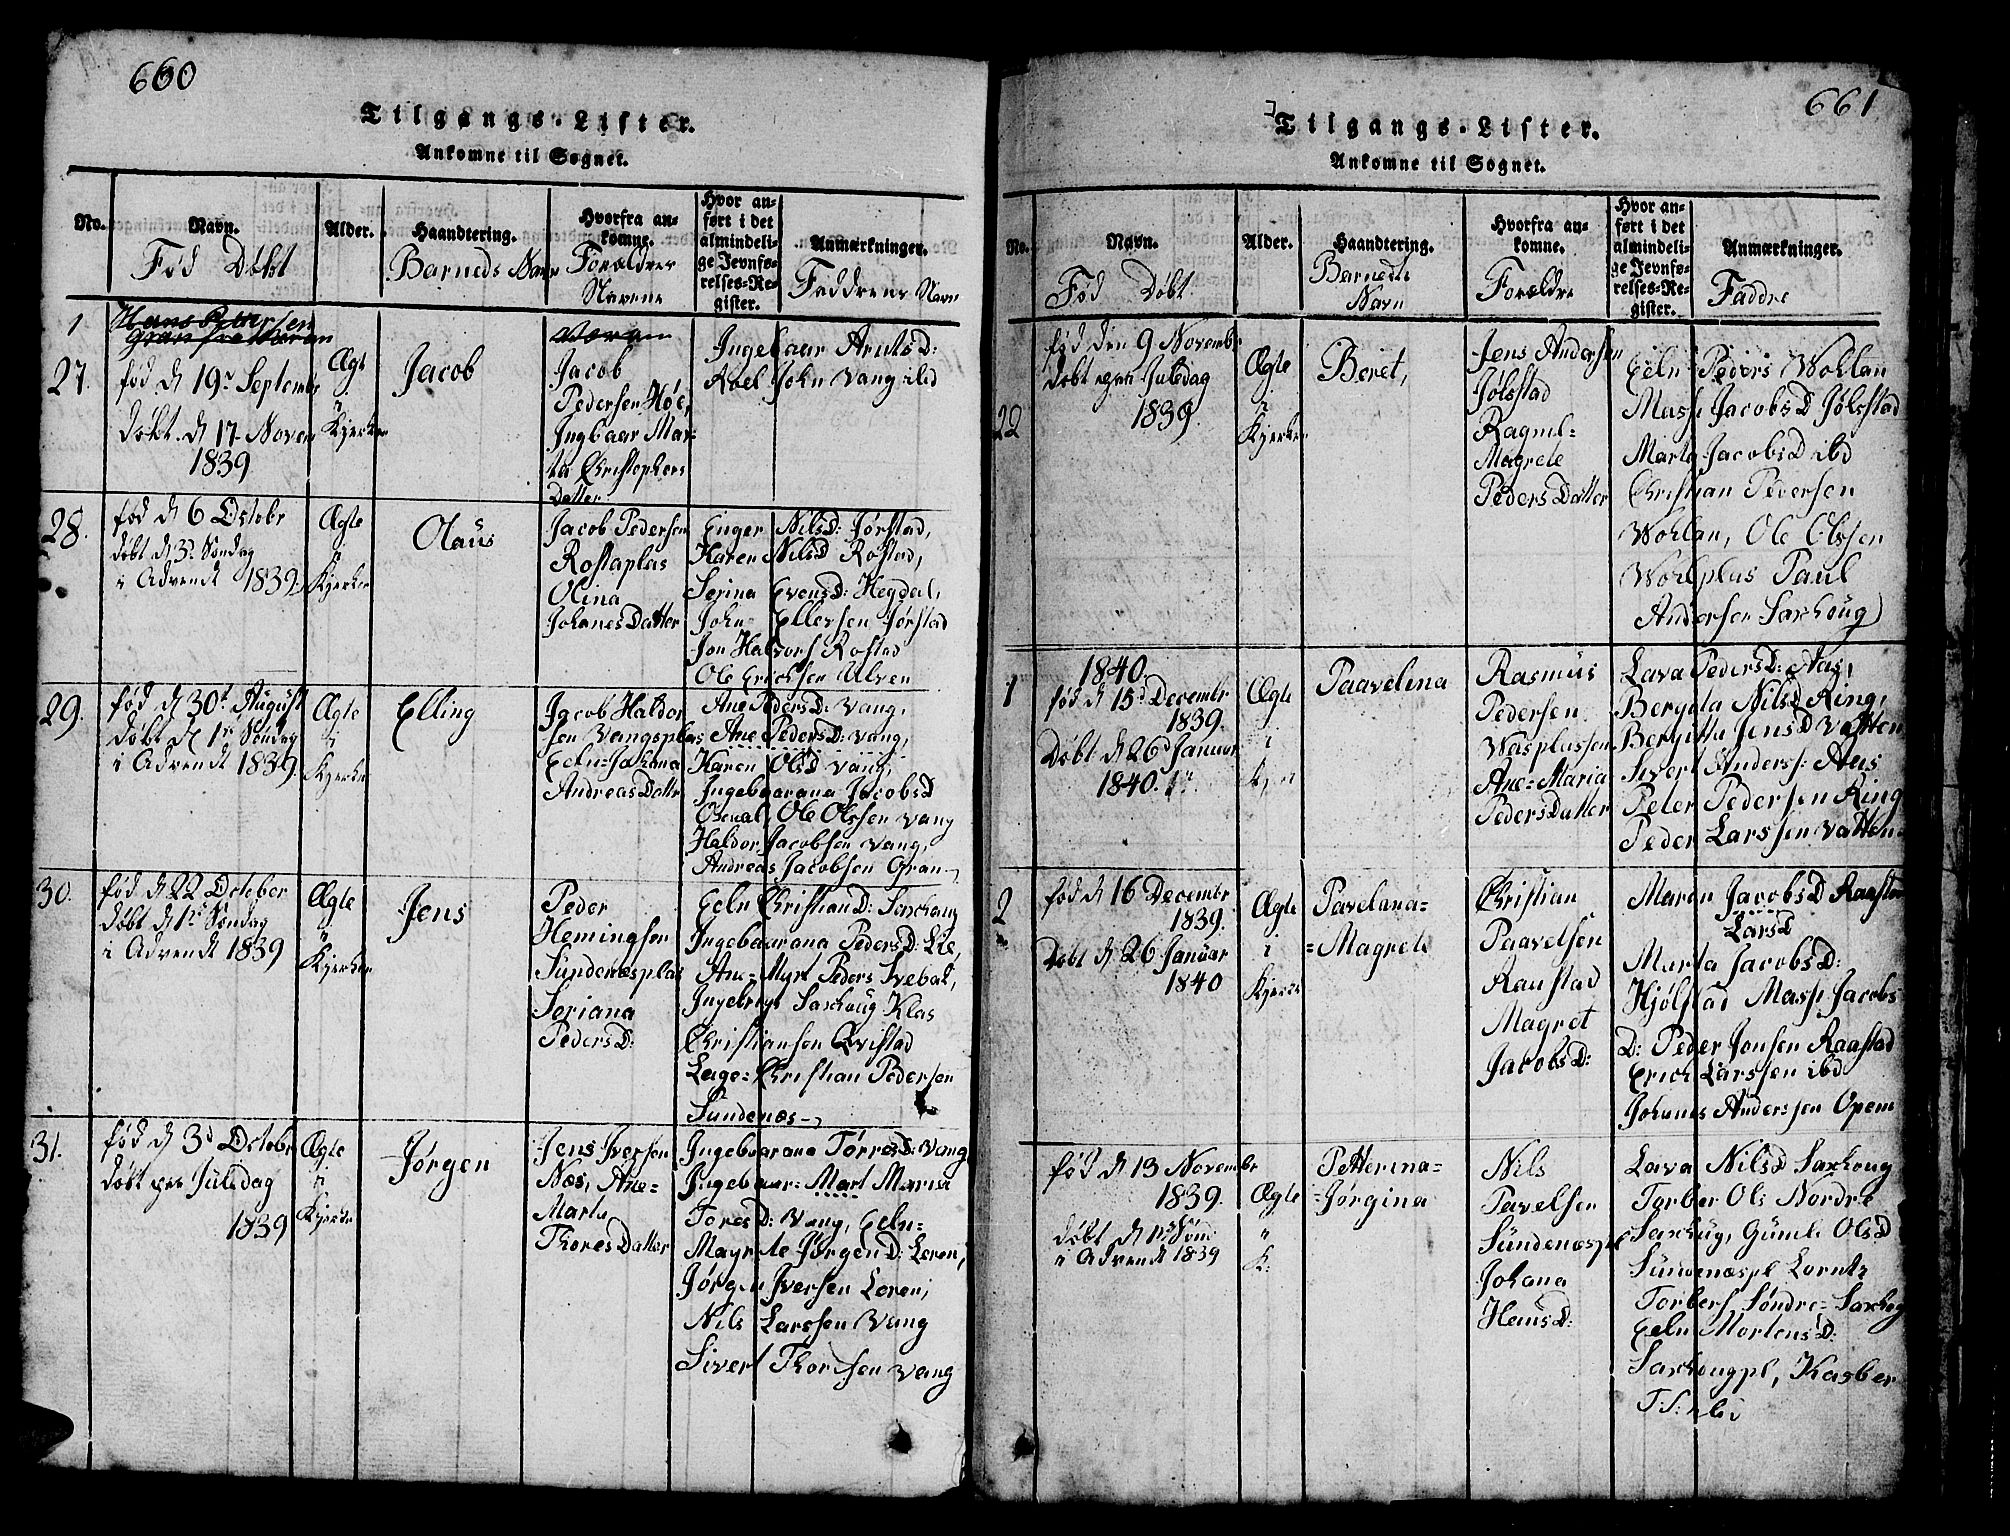 660
Tilgangs-Lister.
Ankomne til Sognet.
No.
Navn.
Alder.
Haandtering.
Hvorfra an-
komne.
Hvor an-
ført i det
almindeli-
ge Jevnfø-
relses-Re-
gister.
Anmærkninger.
Fød Døbt
Barneds Navn
Forældres
Navene
Faddrens Navn
1
27.
fød d 19. Septembr
døbt d 17 Novem
1839
Ægte
i
Kjerken
Jacob
Jacob
Pedersen Høe,
Ingbaar Mar-
ta Christophers
Datter
Ingebaar ArntsD:
John Vang ibd
28.
fød d 6 Octobr
døbt d 3d Søndag
i Advendt 1839
Ægte
i
Kjerken
Olaus
Jacob Pedersen
Rostaplas
Olina
Johanes Datter
Enger NilsD: Jørstad,
Karen NilsD Rostad,
Serina EvensD: Hegdal,
John Ellevsen Jørstad
Jon Halvors Rostad
Ole Erichsen Ulven
29.
fød d 30t August
døbt d 1ste Søndag
i Advendt 1839
Ægte
i
Kjerken
Elling
Jacob Haldor
sen Vangsplas
Eeln=Johana
Andreas Dattr
Ane PedersD: Vang,
Ane PedersD: Vang,
Karen OlsD Vang,
Ingebaarana JacobsD
Ole Olssen Vang
Haldor Jacobsen Vang,
Andreas Jacobsen Gran
30.
fød d 22 October
døbt d 1ste Søndag
i Advendt 1839
Ægte
i
Kjerken
Jens
Peder
Hemingsen
Sundenæsplas
Seriana
PedersD:
Eeln ChristianD: Saxhaug
Ingebaarana PedersD: Lie,
Ane=Myrt Peders Svebak,
Ingebrigt Saxhaug Klas
Christiansen Qvistad
Lage=Christian Pedersen
Sundenæs
31.
fød d 3d Octobr
døbt Juledag
1839
Ægte
i
Kjerken
Jørgen
Jens Iversen
Næs, Ane=
Marta
Thores Datter
Ingebaarana TørresD: Vang
Ingebaar=Mart Maria
ToresD: Vang, Eeln=
Magrete JørgenD: Loren,
Jørgen Iversen Loren,
Nils Larssen Vang
Sivert Thorssen Vang
661
Tilgangs-Lister.
Ankomne til Sognet.
No.
Navn.
Alder.
Haandtering.
Hvorfra an-
komne.
Hvor an-
ført i det
almindeli-
ge Jevnfø-
relses-Re-
gister.
Anmærkninger.
Fød Døbt
Barnedts
Navn
Forældre
Faddre
22
fød den 9 Novembr
Døbt Juledag
1839.
Ægte
i
Kjerken
Beret,
Jens Andersen
Jølsstad
Ragnil=
Magrete
Peders Datter
Eeln Peders Wohlan
Masse JacobsD Jølsstad
Marta JacobsD ibd
Christian Pedersen
Wohlan, Ole Olssen
Wohlplas Paul
Andersen Saxhoug
1840.
1
fød d 15d Decembr
1839.
Døbt d 26d Januar
1840.
Ægte
i
Kjer
Paavelina
Rasmus
Pedersen
Wasplassen
Ane=Maria
PedersDatter
Lava PedersD: Aas,
Bergita NilsD Ring,
Bergitta JensD Vatten
Sivert Anders: Aas
Peter Pedersen Ring
Peder Larssen Vatten
2
fød d 16 Decembr
1839.
Døbt d 26 Januar
1840
Ægte
i
Kjerken
Pavelana=
=Magrete
Christian
Paavelsen
Raustad
Magret
JacobsD:
Maren JacobsD Raastad
LarsD
Marta JacobsD:
Hjølstad Masse Jacobs
D: Peder Jonsen Raastad
Erich Larssen ibd
Johanes Anderssen Opem
fød d 13 Novembr
1839.
døbt d 1ste Sønd
i Advendt 1839
Ægte
"
K:
Petterina=
=Jørgina
Nils
Pavelsen
Sundenæspl
Johana
HansD:
Lava NilsD Saxhoug
Torber Ols Nordre
Saxhug, Gunele OlsD
Sundenæspl Lorntz
Torbers Søndre=Saxhog
Eeln MortensD:
Saxhougpl, Kasber